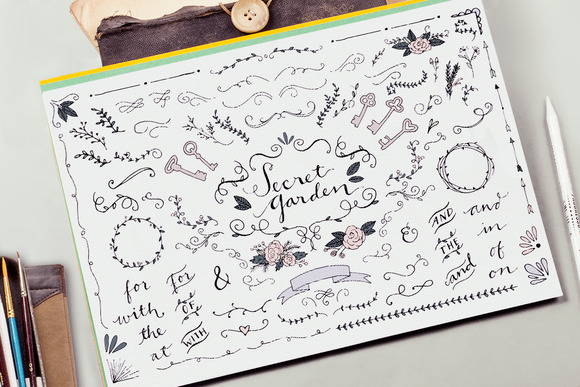 Secret
garden
for
with
the
at
for
OF
WITH
&
&
AND
THE
and
and
in
of
on